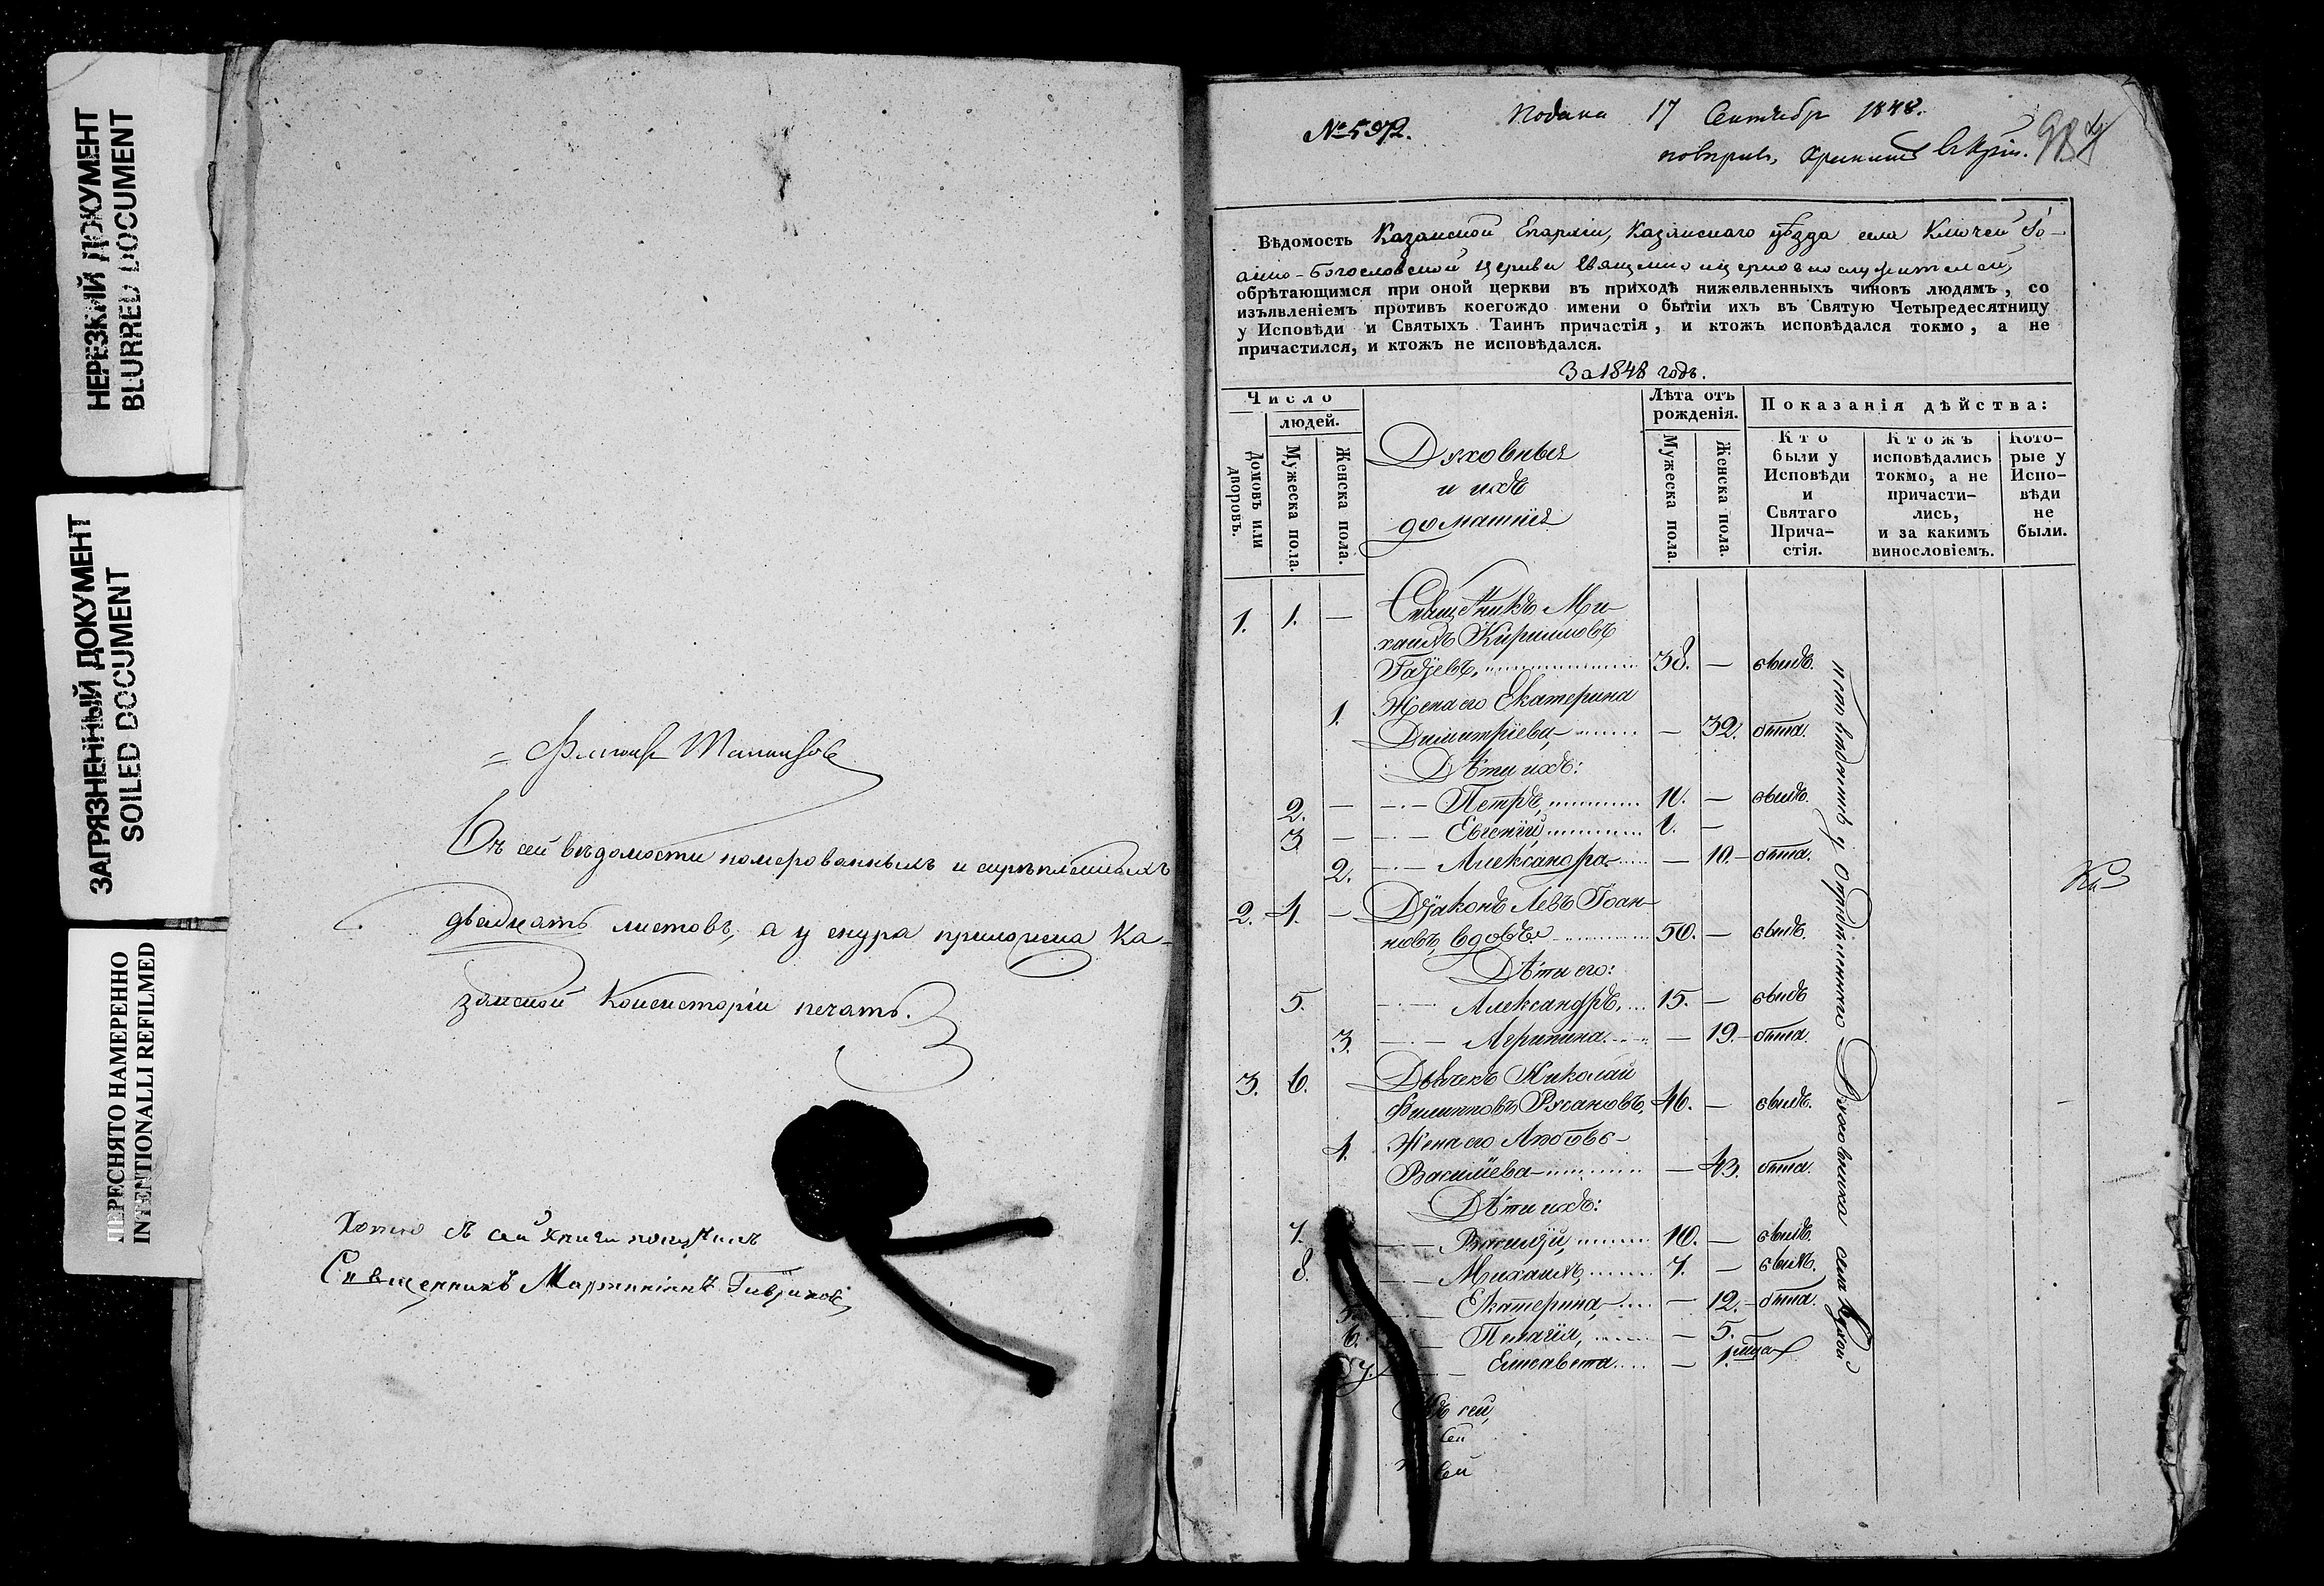 НЕРЕЗКИЙ ДОКУМЕНТ
BLURRED DOCUMENT
ЗАГРЯЗНЕННЫЙ ДОКУМЕНТ
SOILED DOCUMENT
ПЕРЕСНЯТО НАМЕРЕННО
INTENTIONALLI REFILMED
Въ сей вѣдомости номерованныхъ и скрѣпленныхъ
двадцать листовъ, а у снура приложена Ка-
занской Консисторіи печать.
Копію съ сей книги получилъ
Священникъ
№ 5972.
Подана 17 Сентябр 1848.
Вѣдомость Казанской Епархіи, Казанскаго уѣзда села Ключей Іо-
анно-Богословской церкви Священно и церковнослужителей,
обрѣтающимся при оной церкви въ приходѣ нижеявленныхъ чиновъ людямъ, со
изъявленіемъ противъ коегождо имени о бытіи ихъ въ Святую Четыредесятницу
у Исповѣди и Святыхъ Таинъ причастія, и ктожъ исповѣдался токмо, а не
причастился, и ктожъ не исповѣдался.
За 1848 годъ.
Число
людей.
Домовъ или дворовъ.
Мужеска пола.
Женска пола.
Духовныя
и ихъ
домашнія
Лѣта отъ рожденія.
Мужеска пола.
Женска пола.
Показанія дѣйства:
Кто были у Исповѣди и Святаго Прича-стія.
Ктожъ исповѣдались токмо, а не причасти-лись, и за какимъ винословіемъ.
Кото-рые у Испо-вѣди не были.
1. 1. — Священникъ Ми-
хаилъ Кирилловъ
38. — былъ.
1. Жена его Екатерина
Димитріева, — 32. была.
Дѣти ихъ:
2. — Петръ, 11. — былъ.
3 — Евгеній, 1. —
2. Александра — 10. — была.
2. 4. — Діаконъ Левъ Іоан-
новъ, вдовъ 50. — былъ.
Дѣти его:
5. Александръ, 15. — былъ
3. Агрипина. — 19. — была.
3. 6. Дьячекъ Николай
Филипповъ Русановъ, 46. — былъ.
4. Жена его Любовь
Васильева — 43. была.
Дѣти ихъ:
7. Василій, 10. — былъ.
8. Михаилъ, 7. — былъ.
5. Екатерина, — 12. — была.
6. Пелагія, — 5.
7. Елисавета — 1.
исповѣдались у Опредѣленнаго Духовника села